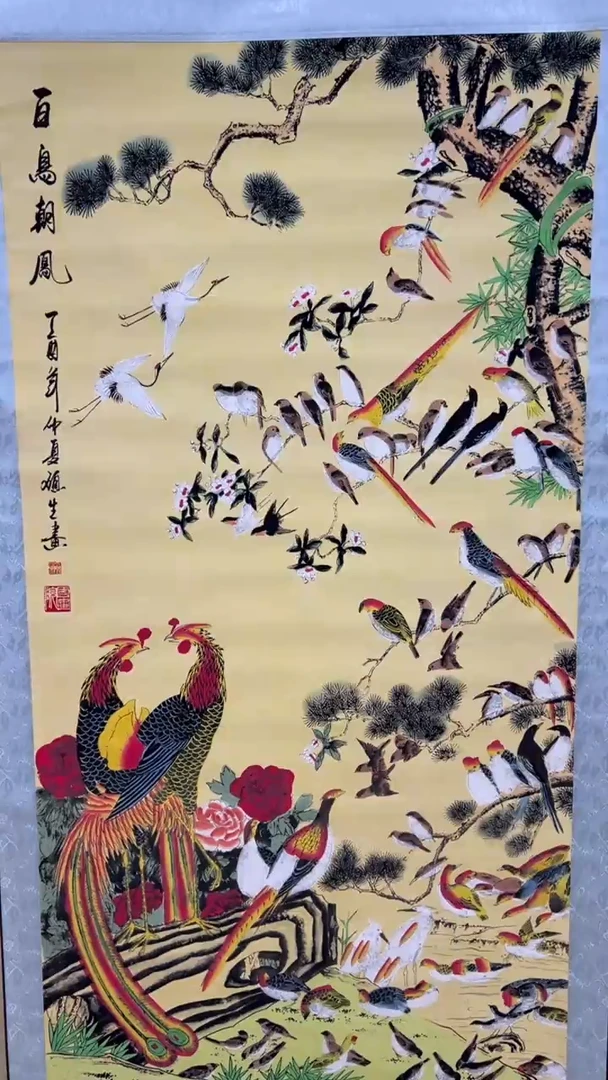 百鳥朝鳳
丁酉年仲夏
生畫